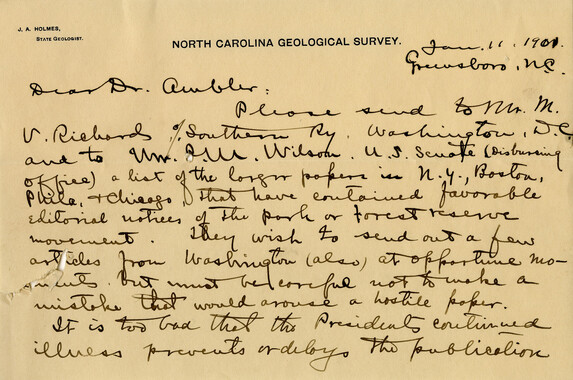 J. A. HOLMES,
STATE GEOLOGIST.
NORTH CAROLINA GEOLOGICAL SURVEY.
Jan. 11. 1901.
Greensboro, N.C.
Dear Dr. Ambler:
Please send to Mr. M.
V. Richards % Southern Ry. Washington, D.C.
and to Mr. Wilson. U.S. Senate (Disbursing
office) a list of the larger papers in N.Y., Boston,
Phila. + Chicago that have contained favorable
editorial notices of the park or forest reserve
movement. They wish to send out a few
articles from Washington (also) at opportune mo-
ments but must be careful not to make a
mistake that would arouse a hostile paper.
It is too bad that the Presidents continued
illness prevents or delays the publication